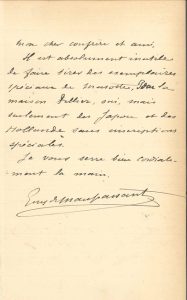 Mon cher confrère et ami,
Il est absolument inutile
de faire tirer des exemplaires
spéciaux de Musotte, Pour la
maison oui, mais
seulement du Japon et du
Hollande sans inscriptions
spéciales.
Je vous serre bien cordiale-
ment la main.
Guy de Maupassant